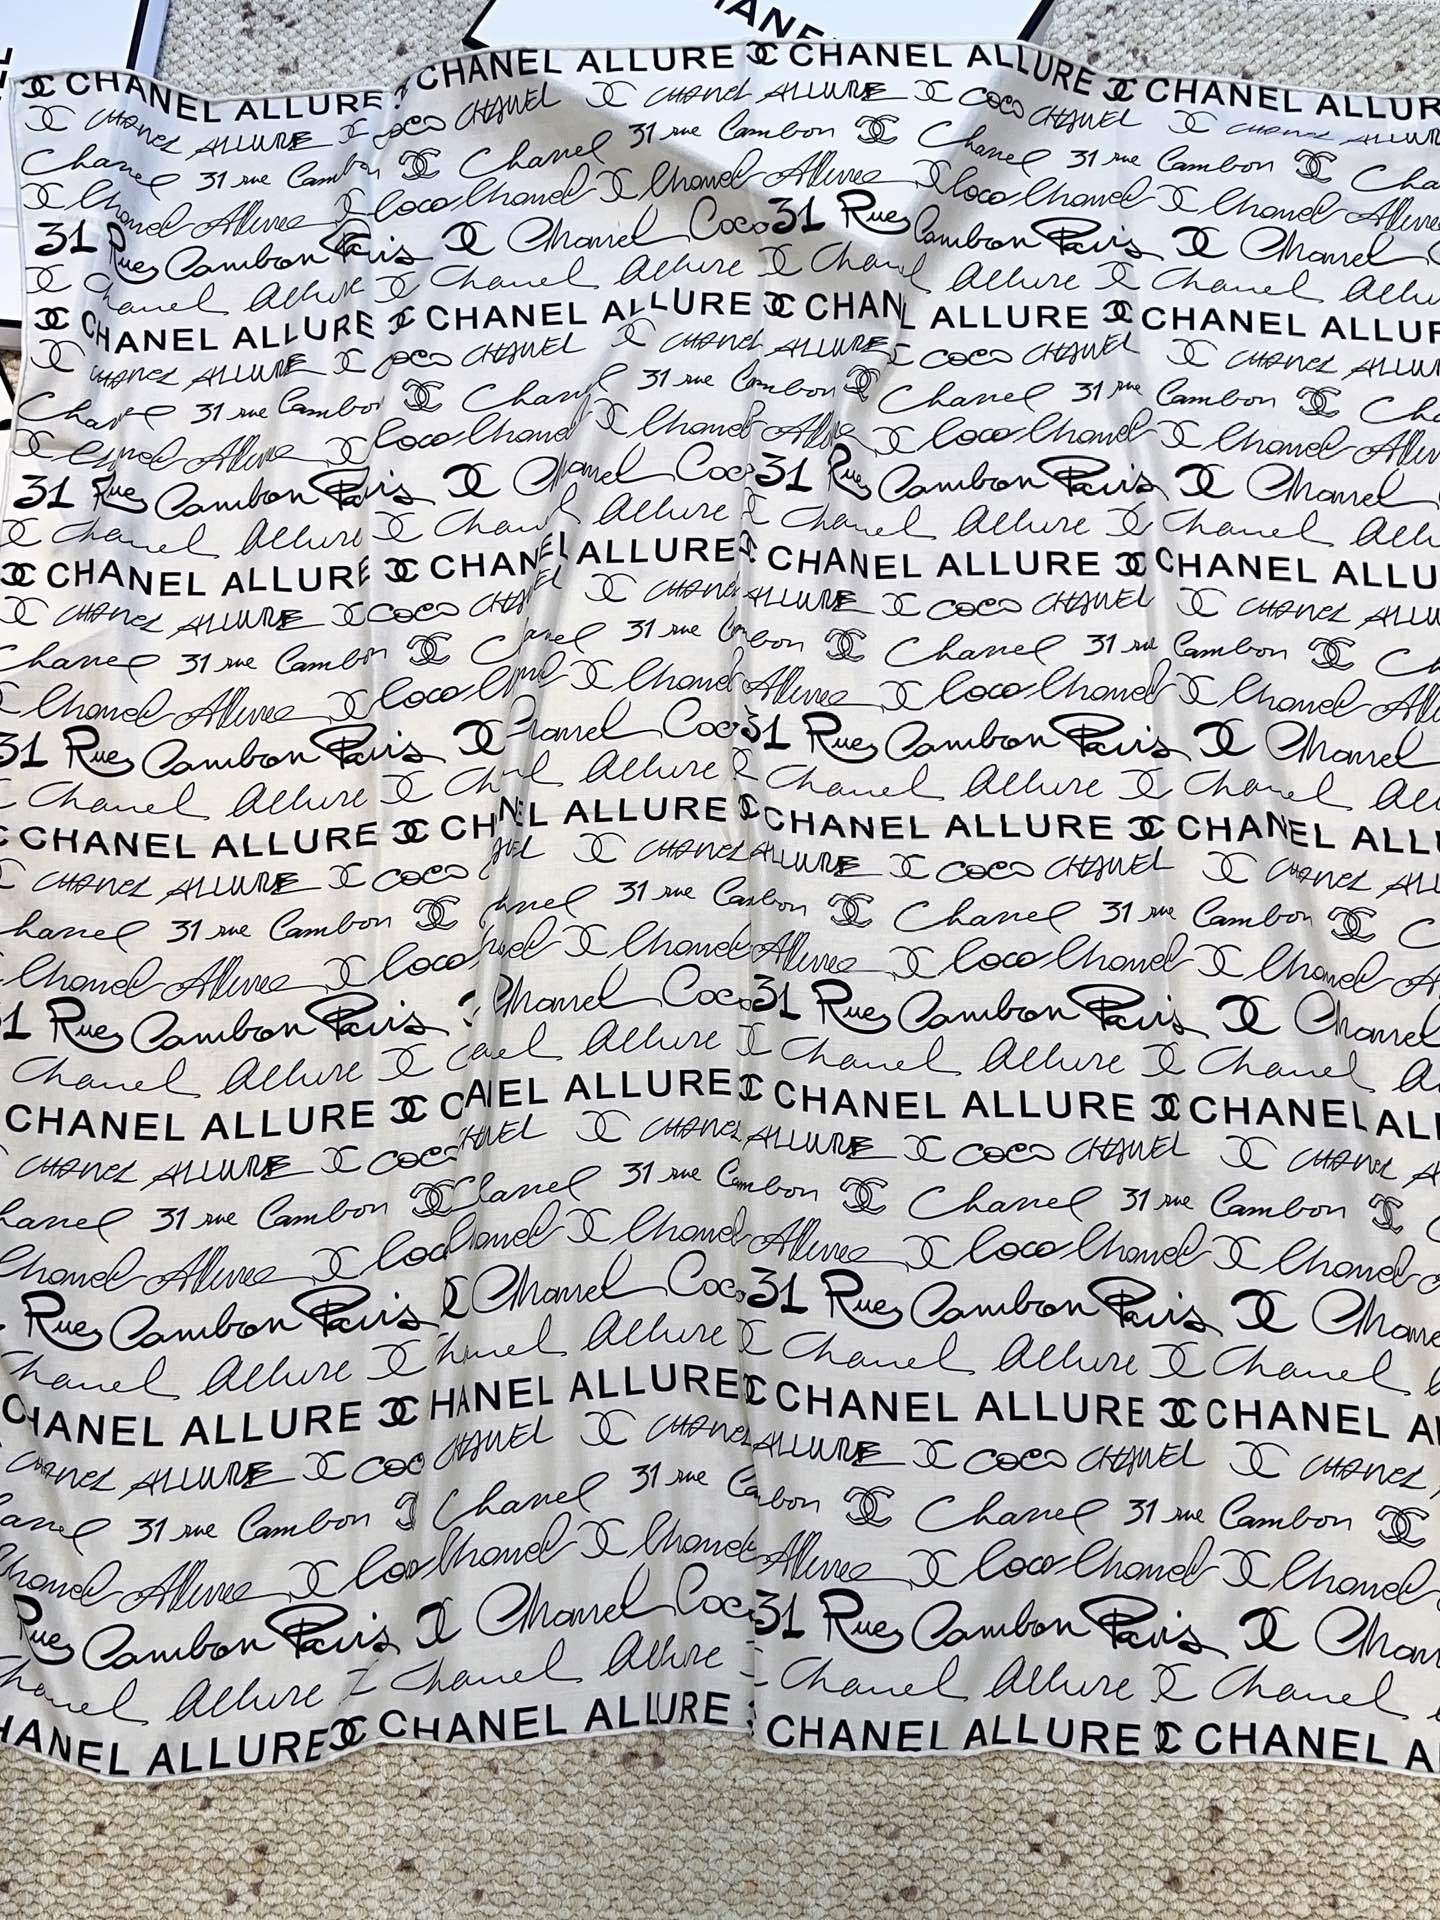 CHANEL
CHANEL ALLURE CHANEL ALLURE CHANEL ALLURE CHANEL ALLURE
CHANEL ALLURE COCO CHANEL CHANEL ALLURE COCO CHANEL CHANEL ALLURE
Chanel 31 rue Cambon Chanel 31 rue Cambon Chanel 31 rue Cambon
Chanel Allure Coco Chanel Chanel Allure Coco Chanel Chanel Allure
31 Rue Cambon Paris Chanel Coco 31 Rue Cambon Paris Chanel
Chanel Allure Chanel Allure Chanel Allure Chanel Allure
CHANEL ALLURE CHANEL ALLURE CHANEL ALLURE CHANEL ALLURE
CHANEL ALLURE COCO CHANEL CHANEL ALLURE COCO CHANEL CHANEL ALLURE
Chanel 31 rue Cambon Chanel 31 rue Cambon Chanel 31 rue Cambon
Chanel Allure Coco Chanel Chanel Allure Coco Chanel Chanel Allure
31 Rue Cambon Paris Chanel Coco 31 Rue Cambon Paris Chanel
Chanel Allure Chanel Allure Chanel Allure Chanel
CHANEL ALLURE CHANEL ALLURE CHANEL ALLURE CHANEL
CHANEL ALLURE COCO CHANEL ALLURE COCO CHANEL CHANEL
Chanel 31 rue Cambon 31 rue Cambon Chanel 31 rue Cambon
Chanel Allure Coco Chanel Allure Coco Chanel Chanel
31 Rue Cambon Paris Chanel Coco 31 Rue Cambon Paris Chanel
Chanel Allure Allure Chanel Allure Chanel
CHANEL ALLURE ALLURE CHANEL ALLURE CHANEL
CHANEL ALLURE COCO CHANEL ALLURE COCO CHANEL CHANEL
31 rue Cambon 31 rue Cambon Chanel 31 rue Cambon
Chanel Allure Coco Chanel Allure Coco Chanel Chanel
Rue Cambon Paris Chanel Coco 31 Rue Cambon Paris Chanel
Chanel Allure Allure Chanel Allure Chanel
CHANEL ALLURE ALLURE CHANEL ALLURE CHANEL
CHANEL ALLURE COCO CHANEL ALLURE COCO CHANEL CHANEL
31 rue Cambon Chanel 31 rue Cambon Chanel 31 rue Cambon
Chanel Allure Chanel Allure Coco Chanel Chanel
Rue Cambon Paris Chanel Coco 31 Rue Cambon Paris
Chanel Allure Allure Chanel Allure Chanel
CHANEL ALLURE ALLURE CHANEL ALLURE CHANEL
ALLURE CHANEL CHANEL ALLURE COCO CHANEL CHANEL
31 rue Cambon Chanel 31 rue Cambon Chanel 31 rue Cambon
Chanel Allure Chanel Allure Coco Chanel Chanel
Rue Cambon Paris Chanel Coco 31 Rue Cambon Paris
Allure Chanel Allure Chanel Allure Chanel
ALLURE CHANEL ALLURE CHANEL ALLURE CHANEL